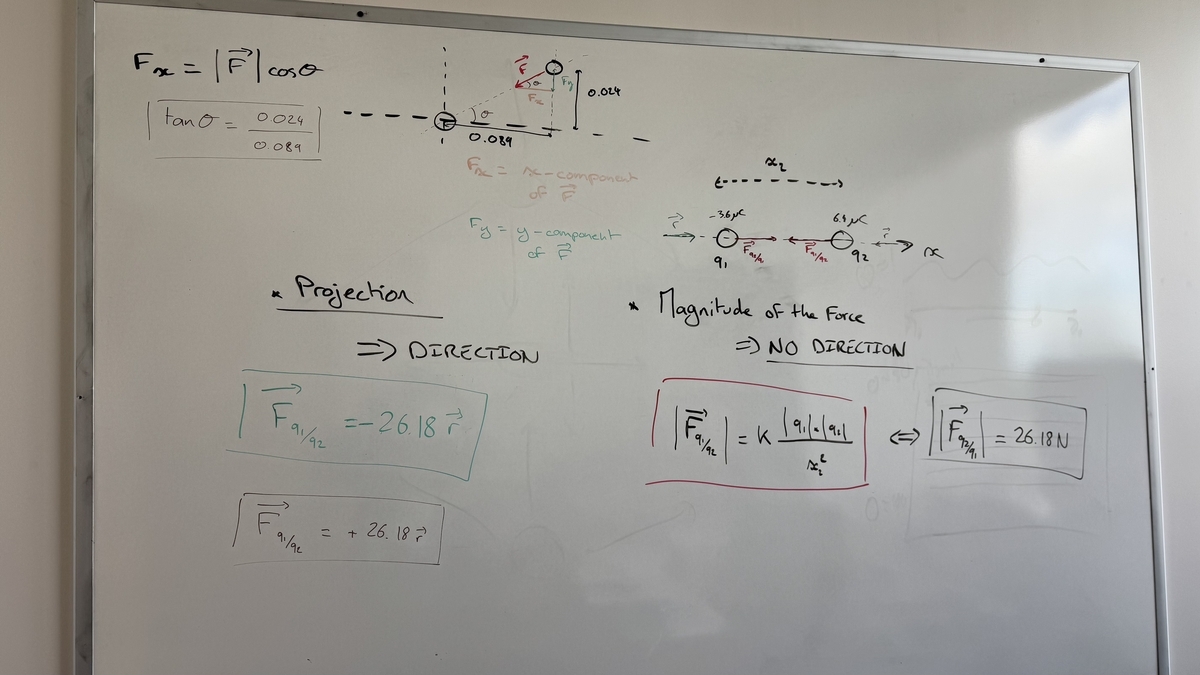 Fₓ = |F⃗| cosθ
tanθ = 0.024 / 0.089
F⃗
θ
Fₓ
Fy
0.024
θ
0.089
Fₓ = x-component
of F⃗
Fy = y-component
of F⃗
x₂
-3.6 μC
6.4 μC
r⃗
r⃗
F⃗ q₂/q₁
F⃗ q₁/q₂
q₁
q₂
x
* Projection
⇒ DIRECTION
F⃗ q₁/q₂ = -26.18 r⃗
F⃗ q₁/q₂ = + 26.18 r⃗
* Magnitude of the Force
⇒ NO DIRECTION
|F⃗ q₁/q₂| = K |q₁|.|q₂| / x₂² ⇔ |F⃗ q₂/q₁| = 26.18 N